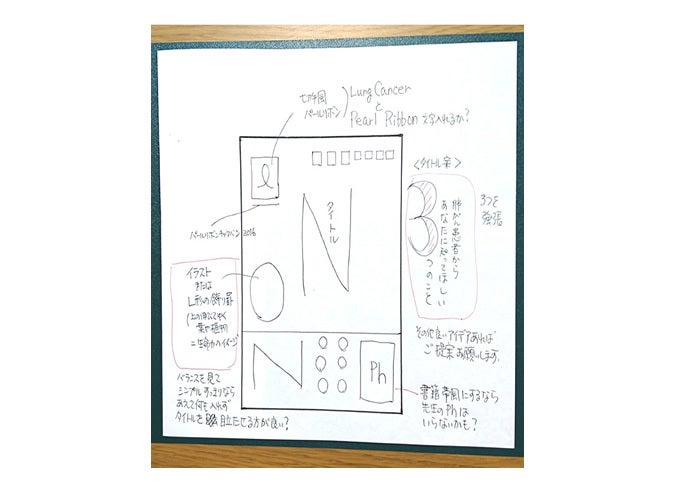 切手風
パールリボン
Lung Cancer
と
Pearl Ribbon 文字入れるか?
パールリボンキャンペーン 2016
タイトル
<タイトル案>
肺がん患者から
あなたに知ってほしい
3つのこと
3つを
強張
イラスト
または
L形の飾り罫
葉や植物
=生命力のイメージ
バランスを見て
シンプルすっきりなら
あえて何も入れず
タイトルを目立たせる方が良い?
その他良いアイデアあれば
ご提案お願いします。
Ph
書籍帯風にするなら
先生のPhは
いらないかも?